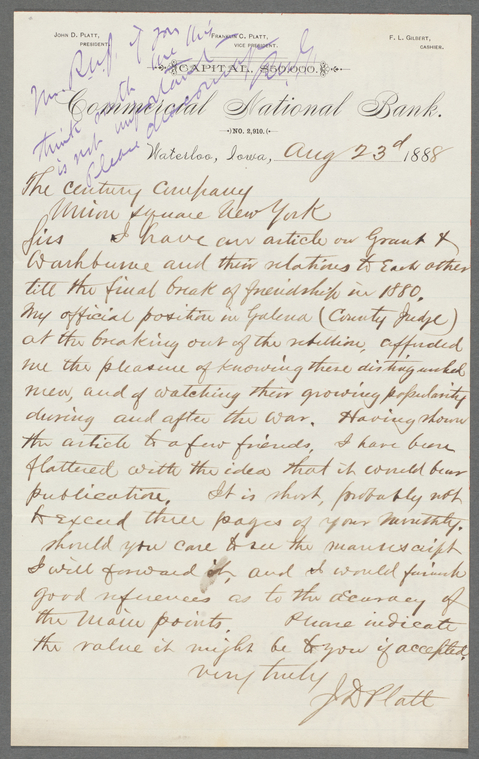 John D. Platt, President.
Franklin C. Platt, Vice President.
F. L. Gilbert, Cashier.
CAPITAL, $50,000.
Commercial National Bank.
NO. 2,910.
Waterloo, Iowa, Aug 23d 1888
if you
think
is not important
Please
The Century Company
Union Square New York
Sirs I have an article on Grant &
Washburne and their relations to Each other
till the final break of friendship in 1880.
My official position in Galena (County Judge)
at the breaking out of the rebellion, afforded
me the pleasure of knowing these distinguished
men, and of watching their growing popularity
during and after the war. Having shown
the article to a few friends, I have been
flattered with the idea that it would bear
publication. It is short, probably not
to exceed three pages of your Monthly.
Should you care to see the manuscript
I will forward it, and I would furnish
good references as to the accuracy of
the Main points Please indicate
the value it might be to you if accepted.
Very truly
J D Platt